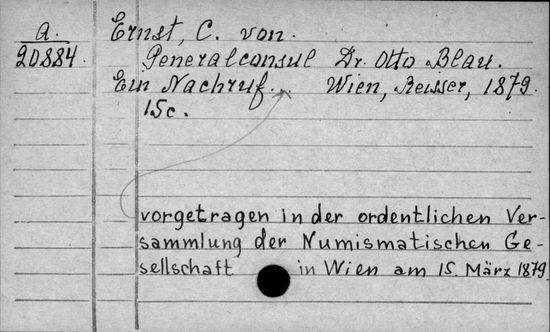 a.
20884.
Ernst, C. von.
Generalconsul Dr. Otto Blau.
Ein Nachruf... Wien, Reisser, 1879.
15c.
vorgetragen in der ordentlichen Ver-
sammlung der Numismatischen Ge-
sellschaft in Wien am 15. März 1879.